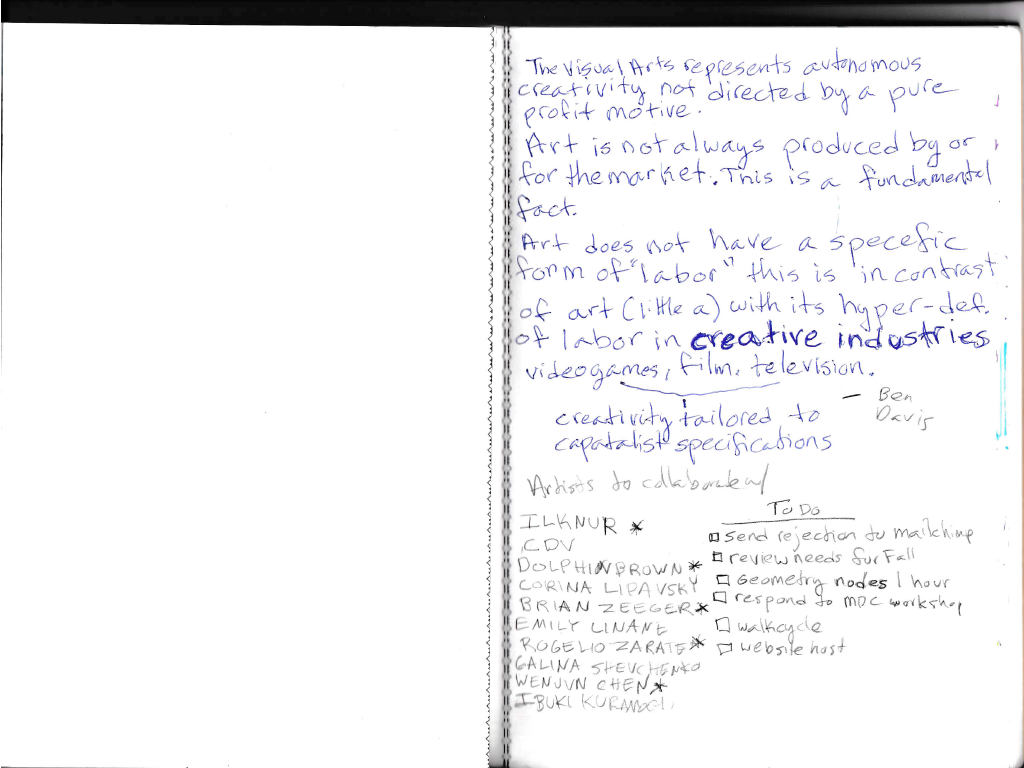 The Visual Arts represents autonomous
creativity not directed by a pure
profit motive.
Art is not always produced by or
for the market. This is a fundamental
fact.
Art does not have a specefic
form of "labor" this is in contrast
of art (little a) with its hyper-def.
of labor in creative industries
videogames, film, television.
— Ben
Davis
creativity tailored to
capatalist specifications
Artists to collaborate w/
ILKNUR *
CDV
DOLPHINBROWN *
CORINA LIPAVSKY
BRIAN ZEEGER *
EMILY LINANE
ROGELIO ZARATE *
GALINA SHEVCHENKO
WENJUN CHEN *
IBUKI KURAMOCHI
To Do
send rejection to mailchimp
review needs for Fall
Geometry nodes 1 hour
respond to MDC workshop
walkcycle
website host